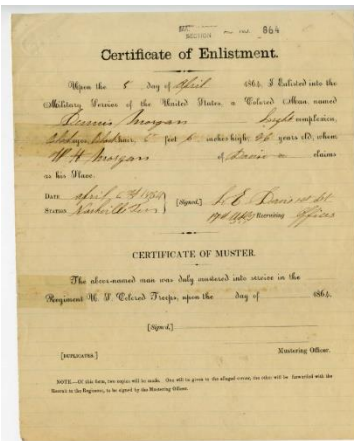 864
Certificate of Enlistment.
Upon the 5 day of April 1864, I Enlisted into the
Military Service of the United States, a Colored Man named
Dennis Morgan bright complexion,
black hair, 5 feet 6 inches high, 26 years old, whom
W H Morgan of claims
as his Slave.
Date April 1864
Station Nashville Tenn [Signed.] E. Davis 1st Lt.
Recruiting Officer
CERTIFICATE OF MUSTER.
The above-named man was duly mustered into service in the
Regiment U. S. Colored Troops, upon the day of 1864.
[Signed.]
[DUPLICATES.] Mustering Officer.
NOTE.—Of this form, two copies will be made. One will be given to the alleged owner, the other will be forwarded with the
Recruit to the Regiment, to be signed by the Mustering Officer.